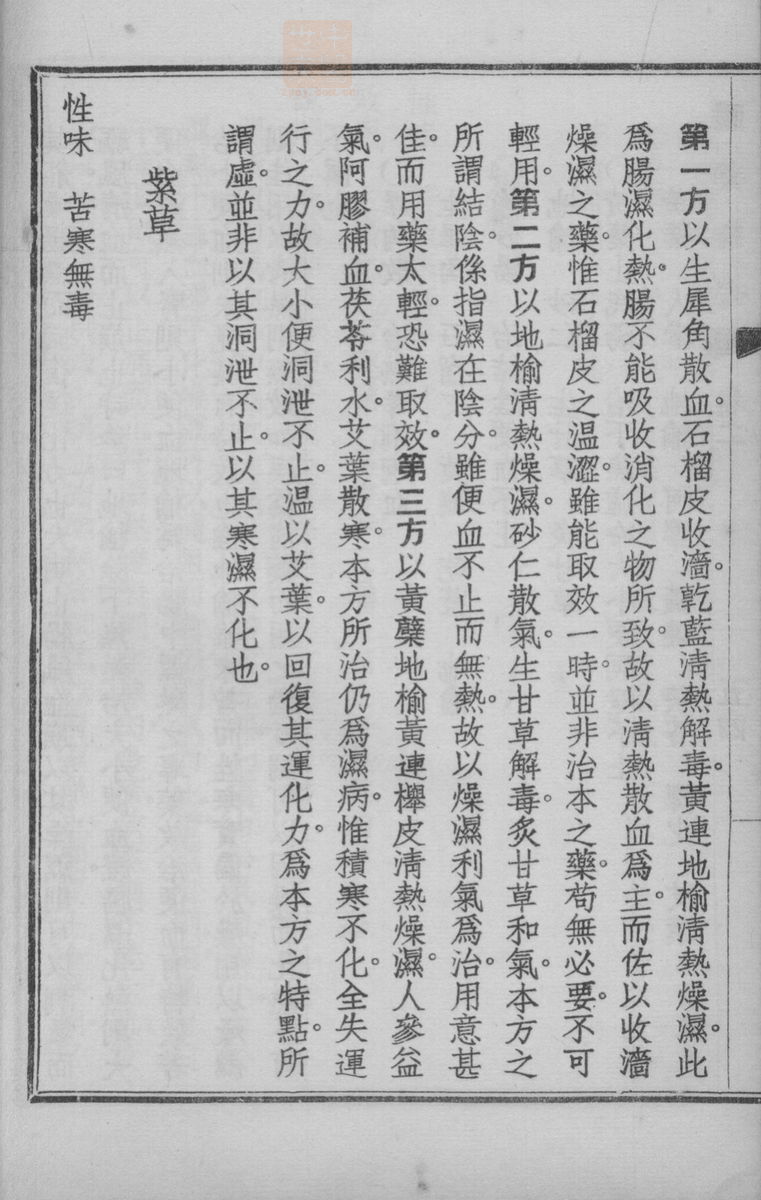 第一方以生犀角散血。石榴皮收濇。乾藍淸熱解毒。黃連地榆淸熱燥濕。此
爲腸濕化熱。腸不能吸收消化之物所致。故以淸熱散血爲主。而佐以收濇
燥濕之藥。惟石榴皮之温澀。雖能取效一時。並非治本之藥。苟無必要。不可
輕用。第二方以地榆淸熱燥濕。砂仁散氣。生甘草解毒。炙甘草和氣。本方之
所謂結陰。係指濕在陰分。雖便血不止而無熱。故以燥濕利氣爲治。用意甚
佳。而用藥太輕。恐難取效。第三方以黃蘗地榆黃連櫸皮淸熱燥濕。人參益
氣。阿膠補血。茯苓利水。艾葉散寒。本方所治仍爲濕病。惟積寒不化。全失運
行之力。故大小便洞泄不止。温以艾葉。以回復其運化力。爲本方之特點。所
謂虛。並非以其洞泄不止。以其寒濕不化也。
紫草
性味　苦寒無毒